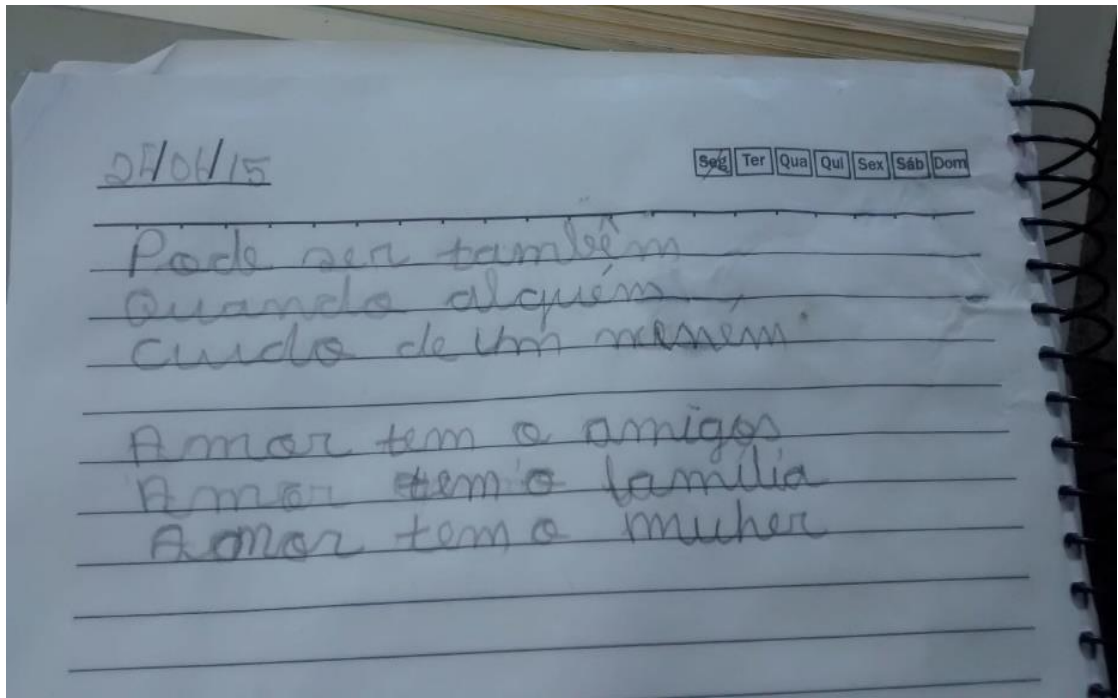 Seg Ter Qua Qui Sex Sáb Dom
Pode ser também
Quando alguém
Cuida de um neném
Amor tem a amigos
Amor tem a família
Amor tem a muher